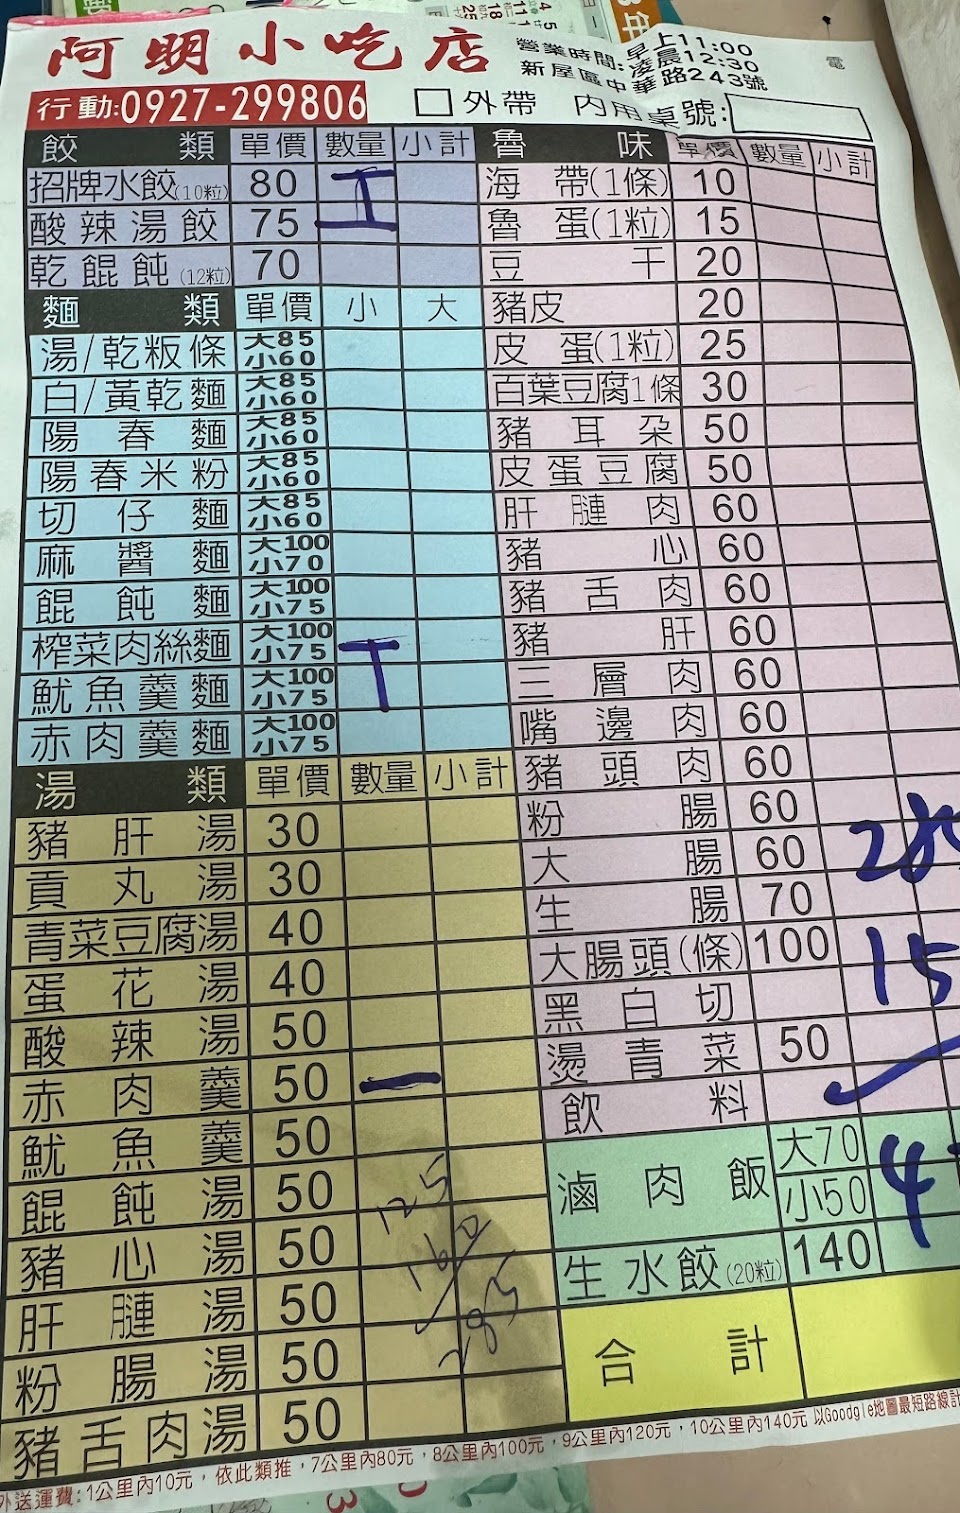 阿明小吃店
營業時間:早上11:00
凌晨12:30
新屋區中華路243號
電
行動:0927-299806
外帶 內用桌號:
餃類 單價 數量 小計
招牌水餃(10粒) 80
酸辣湯餃 75
乾餛飩(12粒) 70
麵類 單價 小 大
湯/乾粄條 大85 小60
白/黃乾麵 大85 小60
陽春麵 大85 小60
陽春米粉 大85 小60
切仔麵 大85 小60
麻醬麵 大100 小70
餛飩麵 大100 小75
榨菜肉絲麵 大100 小75
魷魚羹麵 大100 小75
赤肉羹麵 大100 小75
湯類 單價 數量 小計
豬肝湯 30
貢丸湯 30
青菜豆腐湯 40
蛋花湯 40
酸辣湯 50
赤肉羹 50
魷魚羹 50
餛飩湯 50
豬心湯 50
肝膁湯 50
粉腸湯 50
豬舌肉湯 50
125
160
285
魯味 單價 數量 小計
海帶(1條) 10
魯蛋(1粒) 15
豆干 20
豬皮 20
皮蛋(1粒) 25
百葉豆腐1條 30
豬耳朵 50
皮蛋豆腐 50
肝膁肉 60
豬心 60
豬舌肉 60
豬肝 60
三層肉 60
嘴邊肉 60
豬頭肉 60
粉腸 60
大腸 60
生腸 70
大腸頭(條) 100
黑白切
燙青菜 50
飲料
滷肉飯 大70 小50
生水餃(20粒) 140
合計
285
15
外送運費:1公里內10元，依此類推，7公里內80元，8公里內100元，9公里內120元，10公里內140元 以Goodgle地圖最短路線計